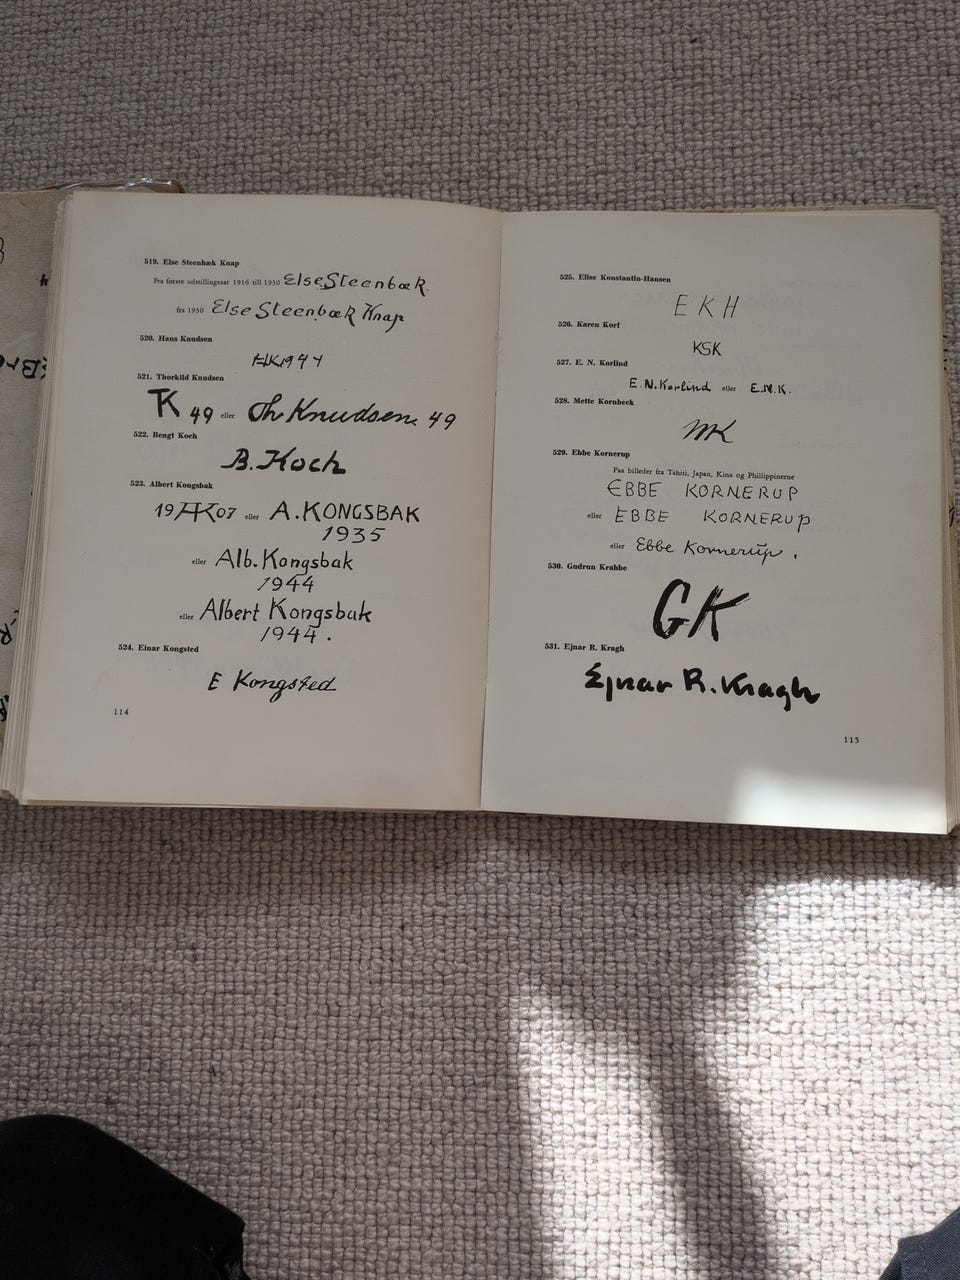 519. Else Steenbæk Knap
Fra første udstillingsaar 1916 till 1930 Else Steenbæk
fra 1930 Else Steenbæk Knap
520. Hans Knudsen
HK 1944
521. Thorkild Knudsen
TK 49 eller Th Knudsen. 49
522. Bengt Koch
B. Koch
523. Albert Kongsbak
19 AK 07 eller A. KONGSBAK
1935
eller Alb. Kongsbak
1944
eller Albert Kongsbak
1944.
524. Einar Kongsted
E Kongsted
114
525. Elise Konstantin-Hansen
EKH
526. Karen Korf
KSK
527. E. N. Korlind
E.N.Korlind eller E.N.K.
528. Mette Kornbeck
MK
529. Ebbe Kornerup
Paa billeder fra Tahiti, Japan, Kina og Phillippinerne
EBBE KORNERUP
eller EBBE KORNERUP
eller Ebbe Kornerup.
530. Gudrun Krabbe
GK
531. Ejnar R. Kragh
Ejnar R. Kragh
115